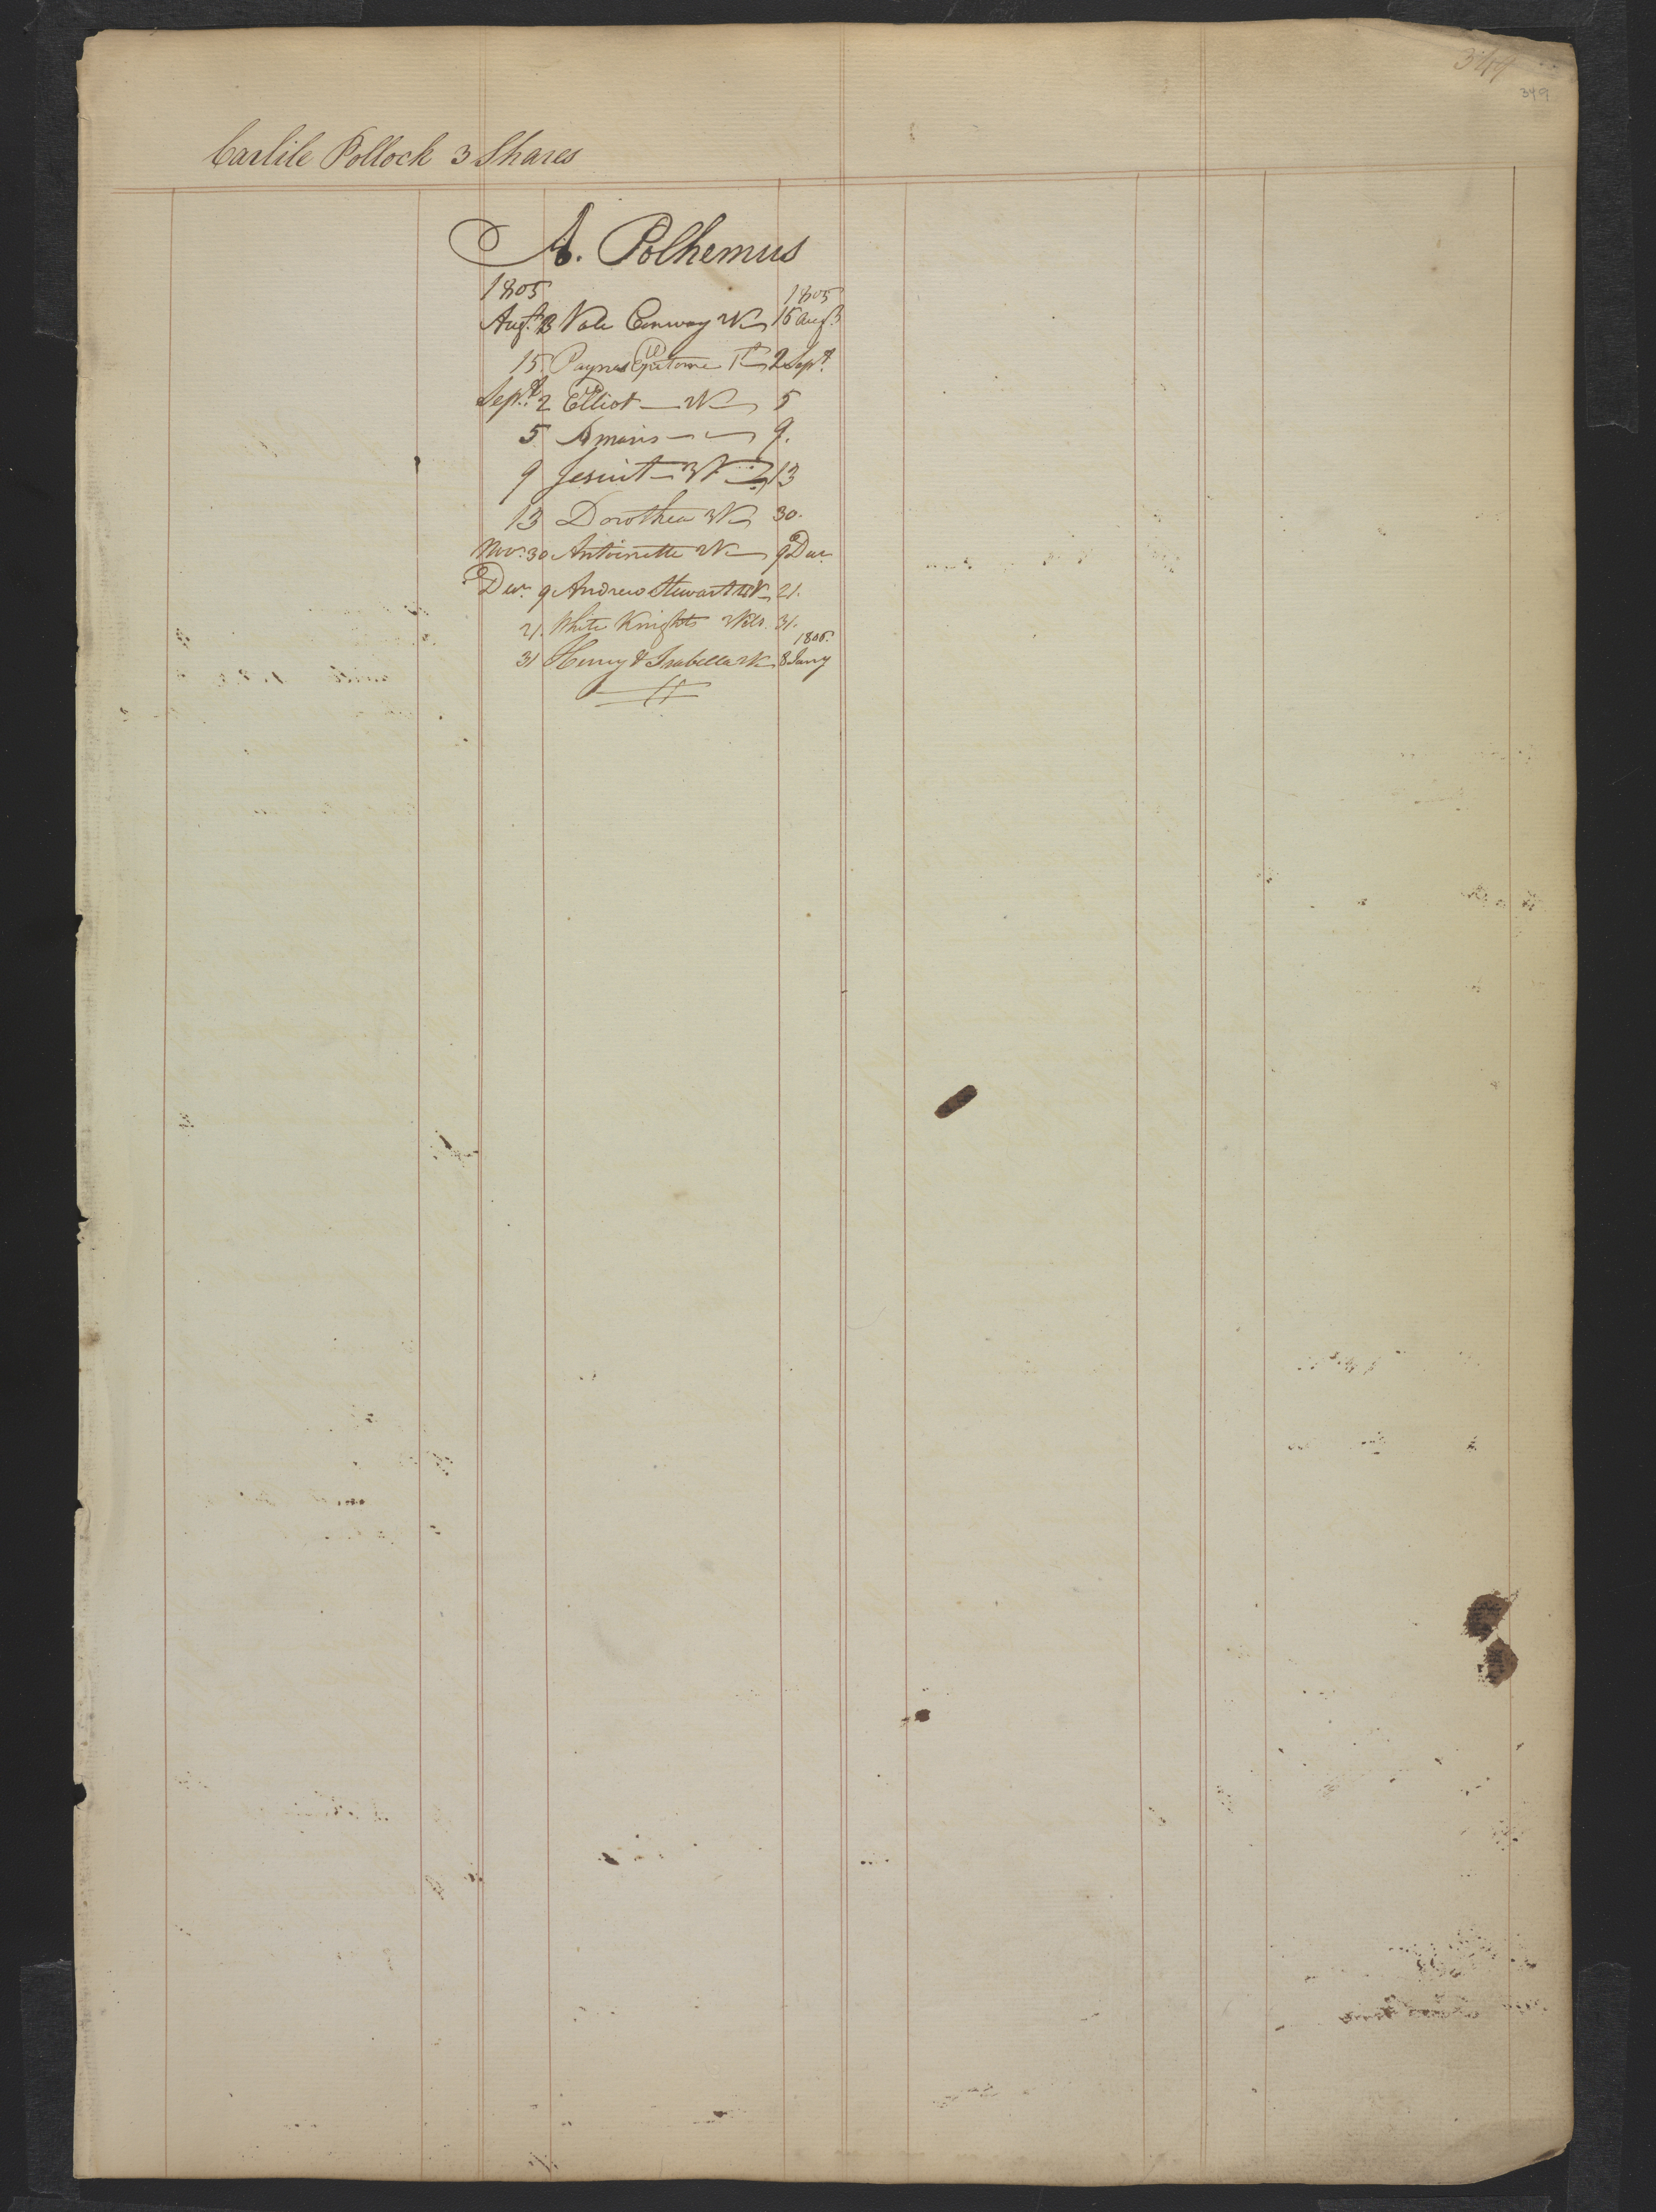 344
349
Carlile Pollock 3 Shares
A. Polhemus
1805 1805
Augt. 13 Vale Conway 2V 15 Augt.
15 Paynes Epitome 2 Sept.
Sept. 2 Elliot 2V 5
5 Amoris 9.
9 Jesuit 3V 13
13 Dorothea 3V 30.
Nov. 30 Antoinette 2V 9 Decr.
Decr. 9 Andrew Stewart 4V 21.
21. White Knights 2Vols. 31.
1806.
31 Henry & Isabella 2V 8 Jany